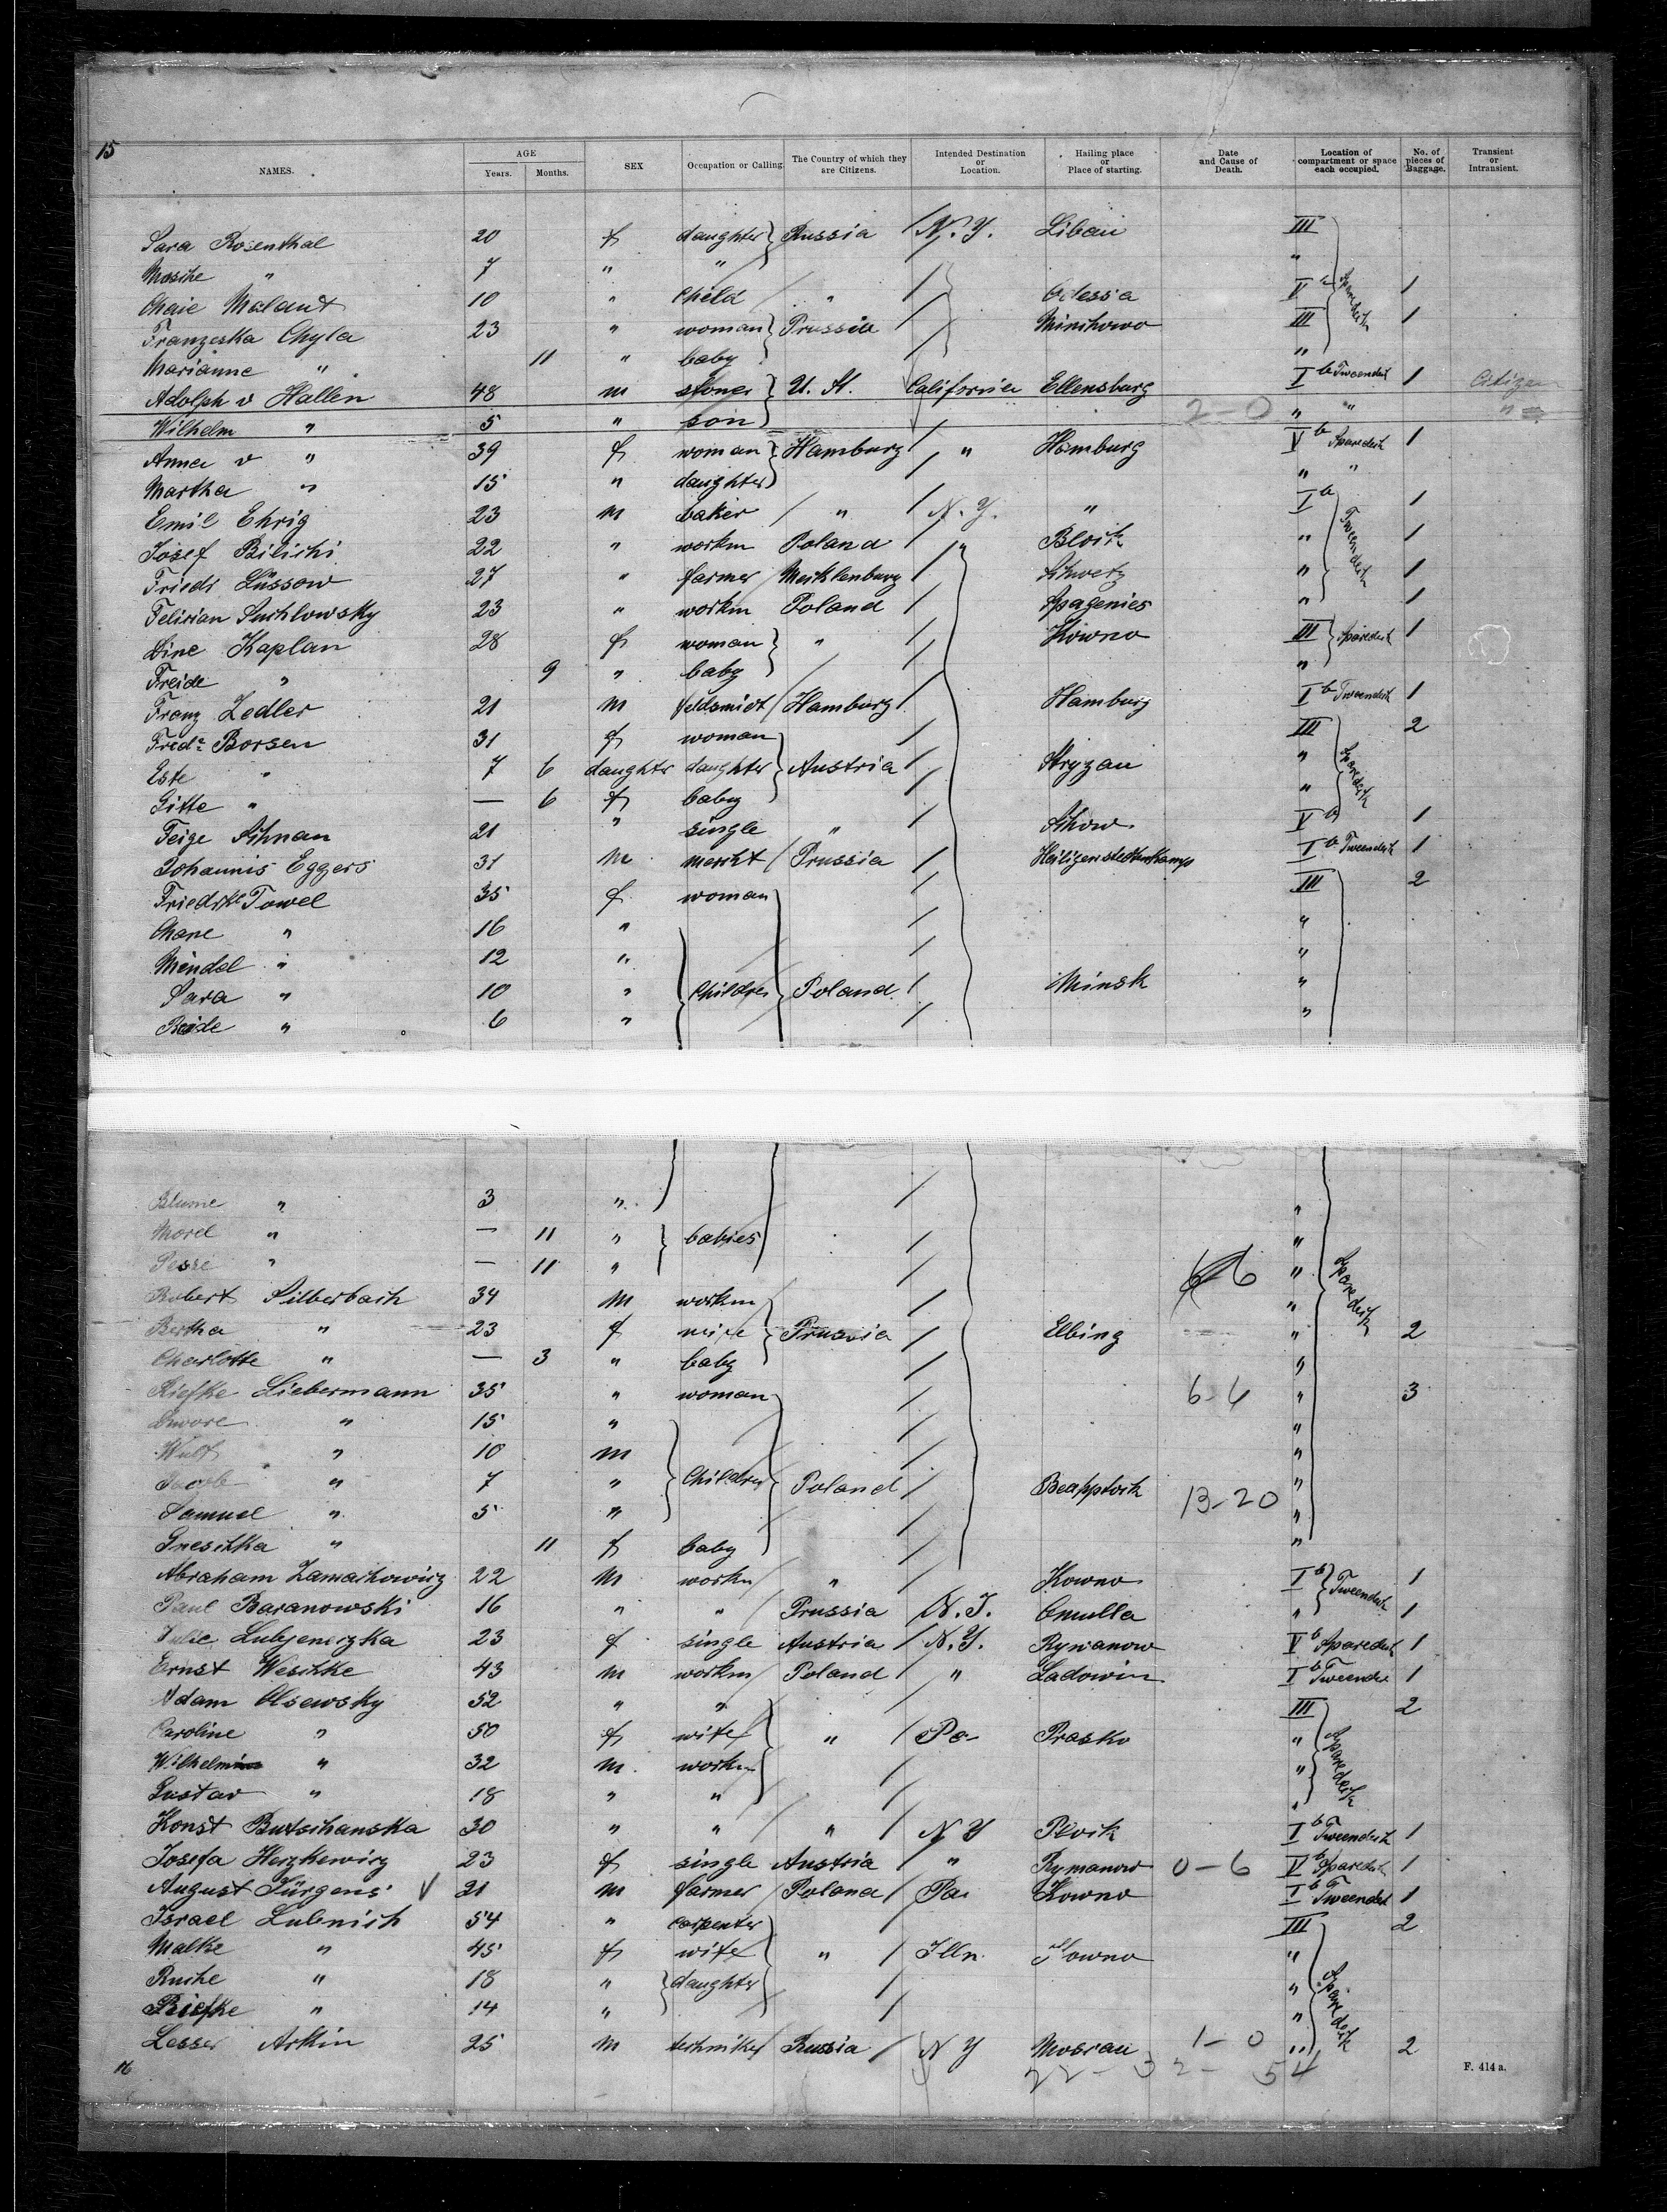 15
NAMES. AGE Years. Months. SEX Occupation or Calling The Country of which they are Citizens. Intended Destination or Location. Hailing place or Place of starting. Date and Cause of Death. Location of compartment or space each occupied. No. of pieces of Baggage. Transient or Intransient.
Sara Rosenthal 20 f daughter Russia N.Y. Libau III
Masche " 7 " " "
Chaie Malant 10 " Child " Odessa V 1
Franzeska Chyla 23 " woman Prussia Minikowo III 1
Marianne " 11 " baby "
Adolph v Hallen 48 m U. St. California Ellensburg I b Tweendeck 1 Citizen
Wilhelm " 5 " son 2-0 " " "
Anna v " 39 f woman Hamburg " Hamburg V b Sparedeck 1
Martha " 15 " daughter " "
Emil Ehrig 23 m baker " N.Y. " I b 1
Josef Bilicki 22 " workm Poland " " 1
Friedr Lüssow 27 " farmer Mecklenburg Schwetz " Tweendeck 1
Felician Suchlowsky 23 " workm Poland Spagenies " 1
Dine Kaplan 28 f woman " Kowno III Sparedeck 1
Freide " 9 " baby "
Franz Zedler 21 m Hamburg Hamburg I b Tweendeck 1
Fredr. Borsen 31 f woman III 2
Este " 7 6 daughter daughter Austria Stryzau " Sparedeck
Gitte " — 6 f baby "
Feige 21 " single " V b 1
Johannis Eggers 31 m mercht Prussia Heiligenstettenkamp I b Tweendeck 1
Friedrke Towel 35 f woman III 2
Chane " 16 " "
Mindel " 12 " "
Sara " 10 " Children Poland Minsk "
Beide " 6 " "
Blume " 3 " "
Morel " — 11 " babies "
Pesse " — 11 " "
Robert Silberbach 34 m workm "
Bertha " 23 f wife Prussia Elbing " Sparedeck 2
Charlotte " — 3 " baby "
Riefke Liebermann 35 " woman 6-6 " 3
" 15 " "
Wulf " 10 m "
Jacob " 7 " Children Poland 13-20 "
Samuel " 5 " "
Gneschka " 11 f baby "
Abraham 22 m workm " Kowno I b Tweendeck 1
Paul Baranowski 16 " " Prussia N.J. Omulla " 1
Julie 23 f single Austria N.Y. Rymanow V b Sparedeck 1
Ernst Weschke 43 m workm Poland " Ladowin I b Tweende 1
Adam Olsewsky 52 " " III 2
Caroline " 50 f wife " Pa Prasko "
Wilhelm " 32 m workm " Sparedeck
Gustav " 18 " " "
Konst Butschanska 30 " " " N Y I b Tweendeck 1
Josefa Herzkewicz 23 f single Austria " Rymanow 0-6 V b Sparedeck 1
August Jürgens V 21 m farmer Poland Pa Kowno I b Tweendeck 1
Israel Lubnich 54 " carpenter III 2
Malke " 45 f wife " Illn. Kowno "
Ruche " 18 " daughter "
Riefke " 14 " " Sparedeck
Lesser Arkin 25 m techniker Russia N Y 1-0 " 2
22-32-54
16
F. 414 a.